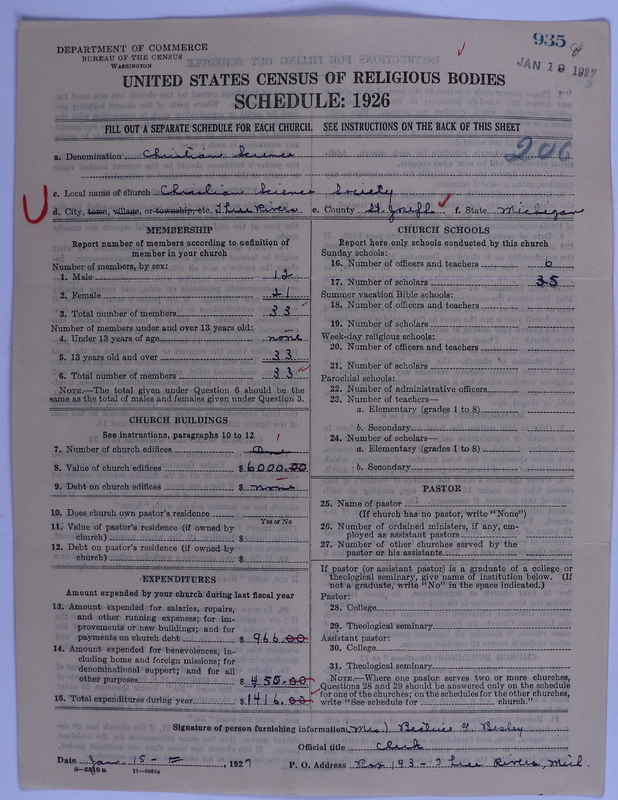 935
JAN 19 1927
DEPARTMENT OF COMMERCE
BUREAU OF THE CENSUS
WASHINGTON
UNITED STATES CENSUS OF RELIGIOUS BODIES
SCHEDULE: 1926
FILL OUT A SEPARATE SCHEDULE FOR EACH CHURCH. SEE INSTRUCTIONS ON THE BACK OF THIS SHEET
206
a. Denomination Christian Science
c. Local name of church Christian Science Society
d. City, town, village, or township, etc. Three Rivers e. County St. Joseph f. State Michigan
MEMBERSHIP
Report number of members according to definition of
member in your church
Number of members, by sex:
1. Male 12
2. Female 21
3. Total number of members 33
Number of members under and over 13 years old:
4. Under 13 years of age none
5. 13 years old and over 33
6. Total number of members 33
NOTE.—The total given under Question 6 should be the
same as the total of males and females given under Question 3.
CHURCH BUILDINGS
See instructions, paragraphs 10 to 12
1
7. Number of church edifices One
8. Value of church edifices $ 6000.00
9. Debt on church edifices $ none
10. Does church own pastor's residence
Yes or No
11. Value of pastor's residence (if owned by
church) $
12. Debt on pastor's residence (if owned by
church) $
EXPENDITURES
Amount expended by your church during last fiscal year
13. Amount expended for salaries, repairs,
and other running expenses; for im-
provements or new buildings; and for
payments on church debt $ 966.00
14. Amount expended for benevolences, in-
cluding home and foreign missions; for
denominational support; and for all
other purposes $ 450.00
15. Total expenditures during year $ 1416.00
CHURCH SCHOOLS
Report here only schools conducted by this church
Sunday schools:
16. Number of officers and teachers 6
17. Number of scholars 35
Summer vacation Bible schools:
18. Number of officers and teachers
19. Number of scholars
Week-day religious schools:
20. Number of officers and teachers
21. Number of scholars
Parochial schools:
22. Number of administrative officers
23. Number of teachers—
a. Elementary (grades 1 to 8)
b. Secondary
24. Number of scholars—
a. Elementary (grades 1 to 8)
b. Secondary
PASTOR
25. Name of pastor
(If church has no pastor, write "None")
26. Number of ordained ministers, if any, em-
ployed as assistant pastors
27. Number of other churches served by the
pastor or his assistants
If pastor (or assistant pastor) is a graduate of a college or
theological seminary, give name of institution below. (If
not a graduate, write "No" in the space indicated.)
Pastor:
28. College
29. Theological seminary
Assistant pastor:
30. College
31. Theological seminary
NOTE.—Where one pastor serves two or more churches,
Questions 28 and 29 should be answered only on the schedule
for one of the churches; on the schedules for the other churches,
write "See schedule for church."
Signature of person furnishing information (Mrs.) Beatrice
Official title Clerk
Date Jan. 15 , 1927 P. O. Address Box 193 - Three Rivers, Mich.